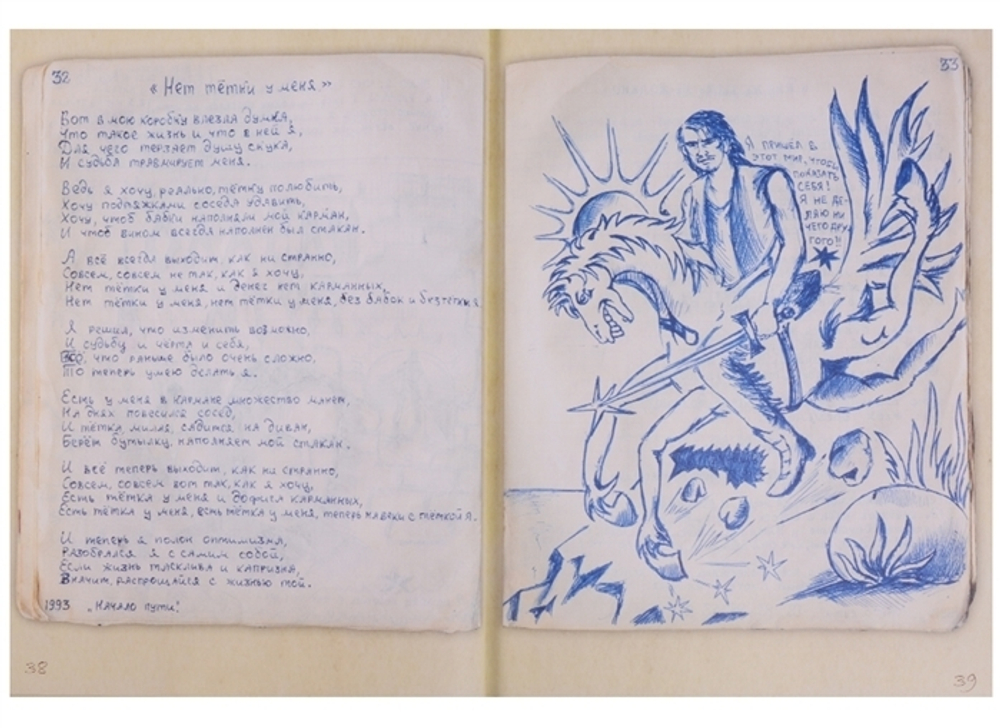 32
«Нет тётки у меня»
Вот в мою коробку влезла думка,
Что такое жизнь и что в ней я,
Для чего терзает душу скука,
И судьба травмирует меня.
Ведь я хочу, реально, тётку полюбить,
Хочу подтяжками соседа удавить,
Хочу, чтоб бабки наполняли мой карман,
И чтоб вином всегда наполнен был стакан.
А всё всегда выходит, как ни странно,
Совсем, совсем не так, как я хочу,
Нет тётки у меня и денег нет карманных,
Нет тётки у меня, нет тётки у меня, без бабок и без тётки я
Я решил, что изменить возможно,
И судьбу и чёрта и себя,
Всё, что раньше было очень сложно,
То теперь умею делать я.
Есть у меня в кармане множество монет,
На днях повесился сосед,
И тётка милая, садится на диван,
Берём бутылку, наполняет мой стакан.
И всё теперь выходит, как ни странно,
Совсем, совсем вот так, как я хочу,
Есть тётка у меня и дофига карманных,
Есть тётка у меня, есть тётка у меня, теперь навеки с тёткой я.
И теперь я полон оптимизма,
Разобрался я с самим собой,
Если жизнь тосклива и капризна,
Значит, распрощайся с жизнью той.
1993 „Начало пути!
38
33
Я пришёл в
этот мир, чтобы
показать
себя!
Я не де-
лаю ни
чего дру
гого!!
39